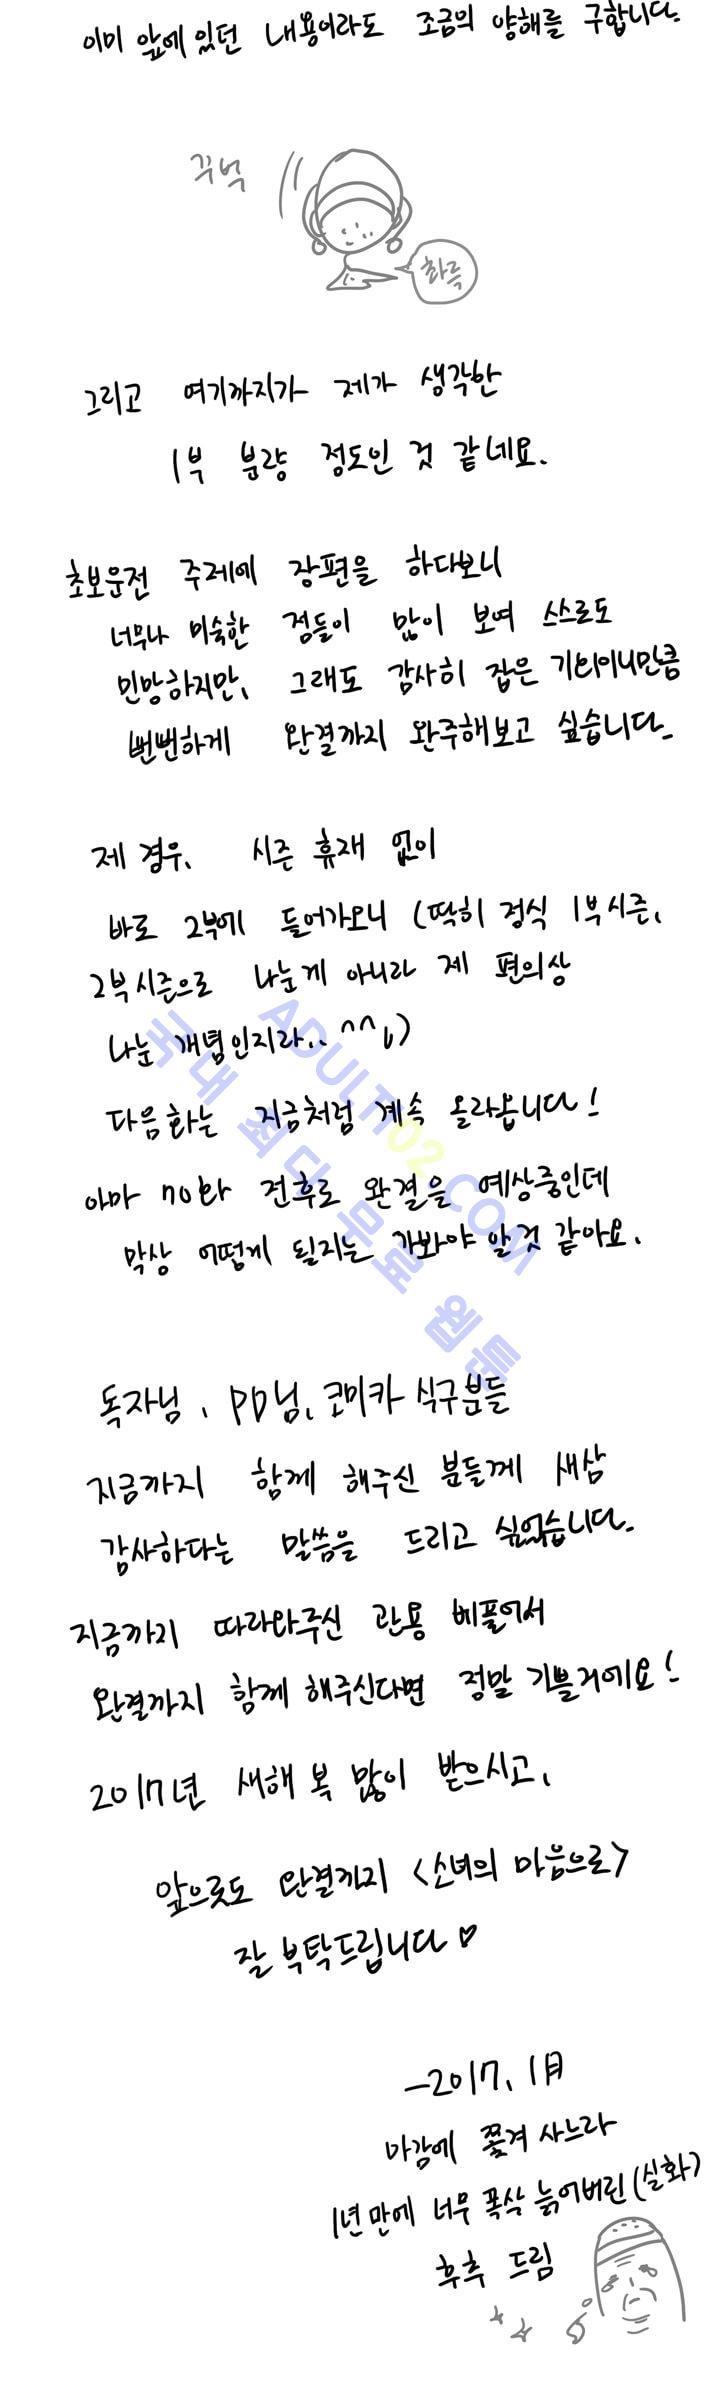 이미 앞에 있던 내용이라도 조금의 양해를 구합니다.
꾸벅
화륵
그리고 여기까지가 제가 생각한
1부 분량 정도인 것 같네요.
초보운전 주제에 장편을 하다보니
너무나 미숙한 점들이 많이 보여 스스로도
민망하지만, 그래도 감사히 잡은 기회이니만큼
뻔뻔하게 완결까지 완주해보고 싶습니다.
제 경우, 시즌 휴재 없이
바로 2부에 들어가오니 (딱히 정식 1부시즌,
2부시즌으로 나눈게 아니라 제 편의상
나눈 개념인지라.. ^^;)
다음화는 지금처럼 계속 올라옵니다!
아마 110화 전후로 완결을 예상중인데
막상 어떻게 될지는 가봐야 알것 같아요.
ADULT02.COM
국내 최다 무료 웹툰
독자님, PD님, 코미카 식구분들
지금까지 함께 해주신 분들께 새삼
감사하다는 말씀을 드리고 싶었습니다.
지금까지 따라와주신 관용 베풀어서
완결까지 함께 해주신다면 정말 기쁠거에요!
2017년 새해 복 많이 받으시고,
앞으롯도 완결까지 <소녀의 마음으로>
잘 부탁드립니다♡
-2017. 1月
마감에 쫓겨 사느라
1년 만에 너무 폭삭 늙어버린 (실화)
후추 드림